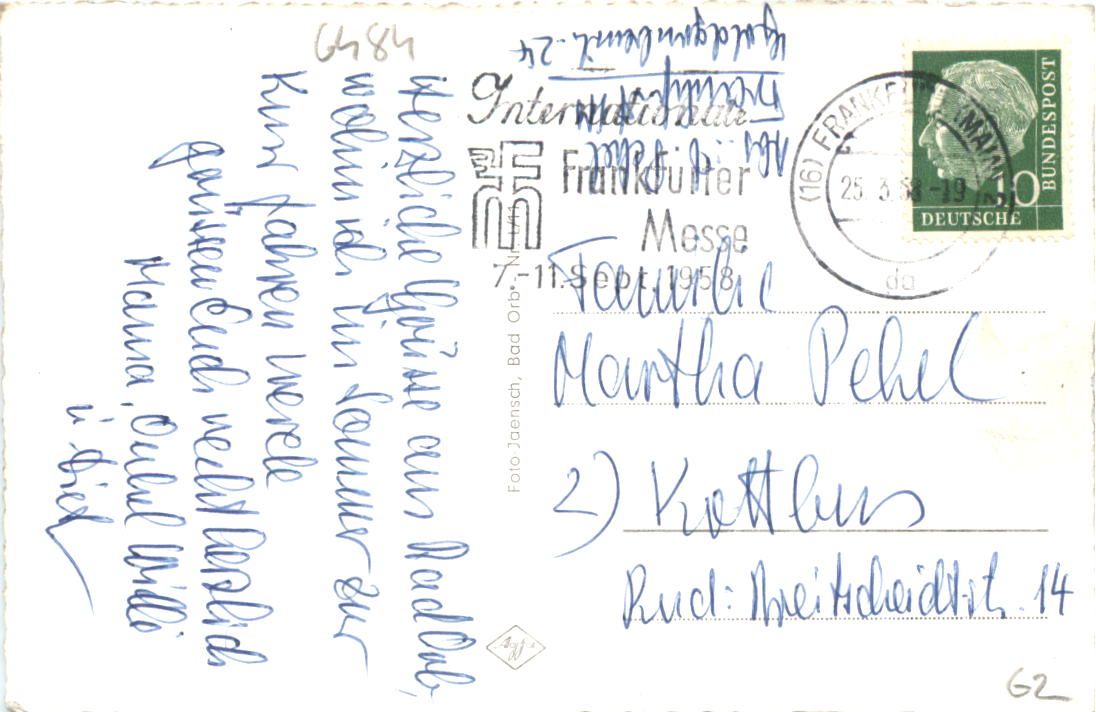 6484
Herzliche Grüsse aus Bad Orb,
wohin ich im Sommer zur
Kur fahren werde
grüssen Euch recht herzlich
Hanna, Onkel Willi
u.
24
Internationale
Frankfurter
Messe
7.-11. Sept. 1958
(16) FRANKFURT (MAIN)
25. 3. 58 -19
da
BUNDESPOST
10
DEUTSCHE
Foto-Jaensch, Bad Orb
Familie
Martha Pehel
2) Kottbus
Rud: Breitscheidtstr. 14
Agfa
G2